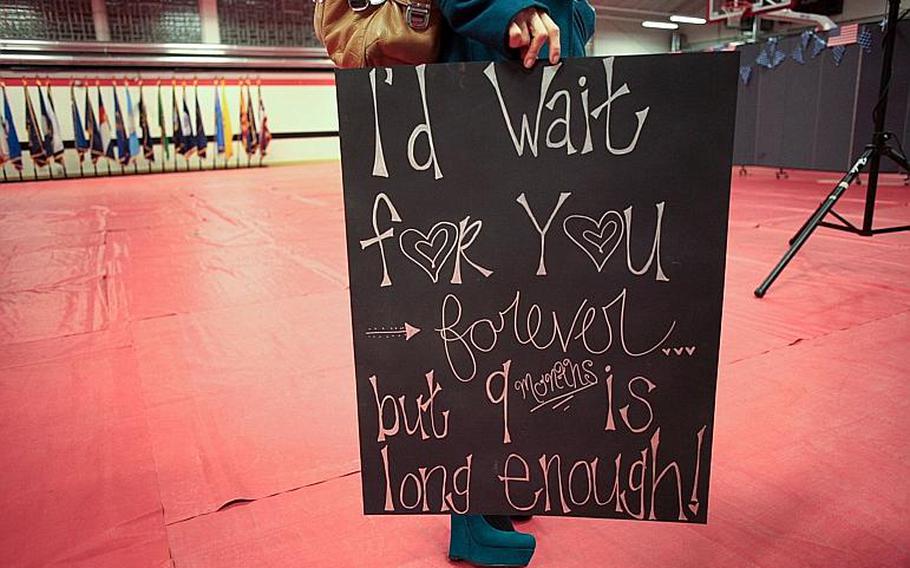 I'd Wait
for You
forever...
but 9 months is
long enough!